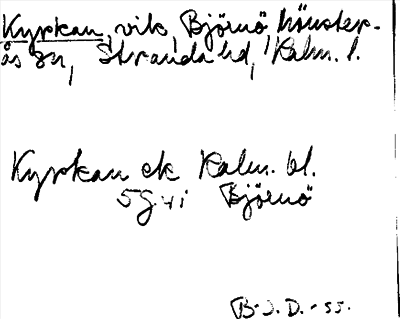 Kyrkan, vik, Björnö, Mönster-
ås sn, Stranda hd, Kalm. l.
Kyrkan ek Kalm. bl.
5G4i Björnö
B.J.D. -55.